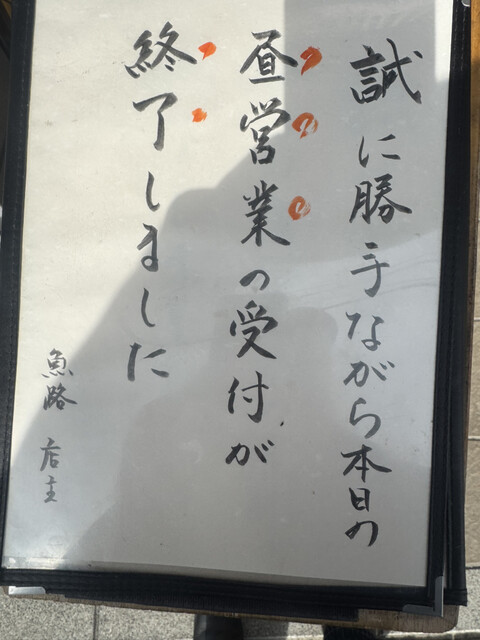 誠に勝手ながら本日の
昼営業の受付が
終了しました
魚路 店主